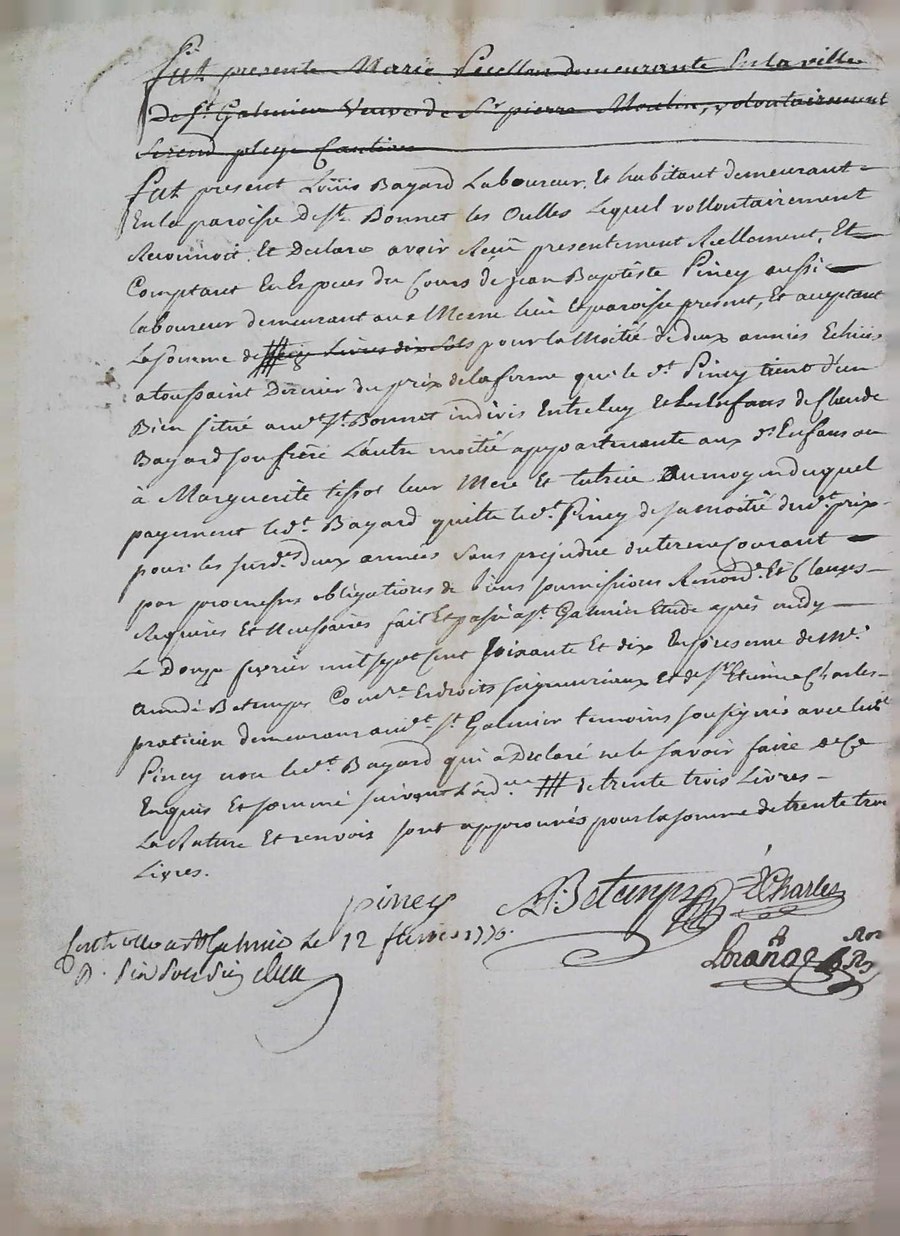 fut presente Marie demeurante En la ville
De st Galmier Veuve de Sr pierre Moulin, volontairement
Se rend plege Caution
fut present Loüis Bayard Laboureur, Et habitant demeurant
En la paroisse De st Bonnet les Oulles Lequel vollontairement
Reconnoit, Et Declare avoir Recü presentement Reellement, Et
Comptant En Especes du Cours de jean Baptiste Piney aussi
laboureur demeurant au Meme lieu Et paroisse present, Et acceptant
La somme de Livres dix sols pour la Moitié de deux années Echües
a toussaint Dernier du prix de la ferme que le dt Piney tient d'un
Bien situé au dt st Bonnet indivis Entre luy Et les Enfans de Claude
Bayard son frere L'autre moitié appartenante aux ds Enfans ou
à Marguerite tissot leur Mere Et tutrice Au moyen duquel
payement le dt Bayard quitte le dt Piney de sa moitié du dt prix
pour les surdes deux années Sans prejudice du terme Courant
par promesses obligations de biens soumissions Renonc. Et Clauses
Requises Et Necessaires fait Et passé a st Galmier Etude après midy
Le Douze fevrier mil sept Cent soixante Et dix En presence de Me
Betemps Comre En droits seigneuriaux Et de sr Etienne Charles
praticien demeurans au dt st Galmier temoins soussignés avec le dt
Piney non le dt Bayard qui a Declaré ne le savoir faire de Ce
Enquis Et sommé suivant L'ordce # de trente trois Livres
La Rature Et renvois sont approuvés pour la somme de trente trois
Livres.
piney
Betemps
E Charles
Controllé a st Galmier Le 12 fevrier 1770.
R. Six sols Six